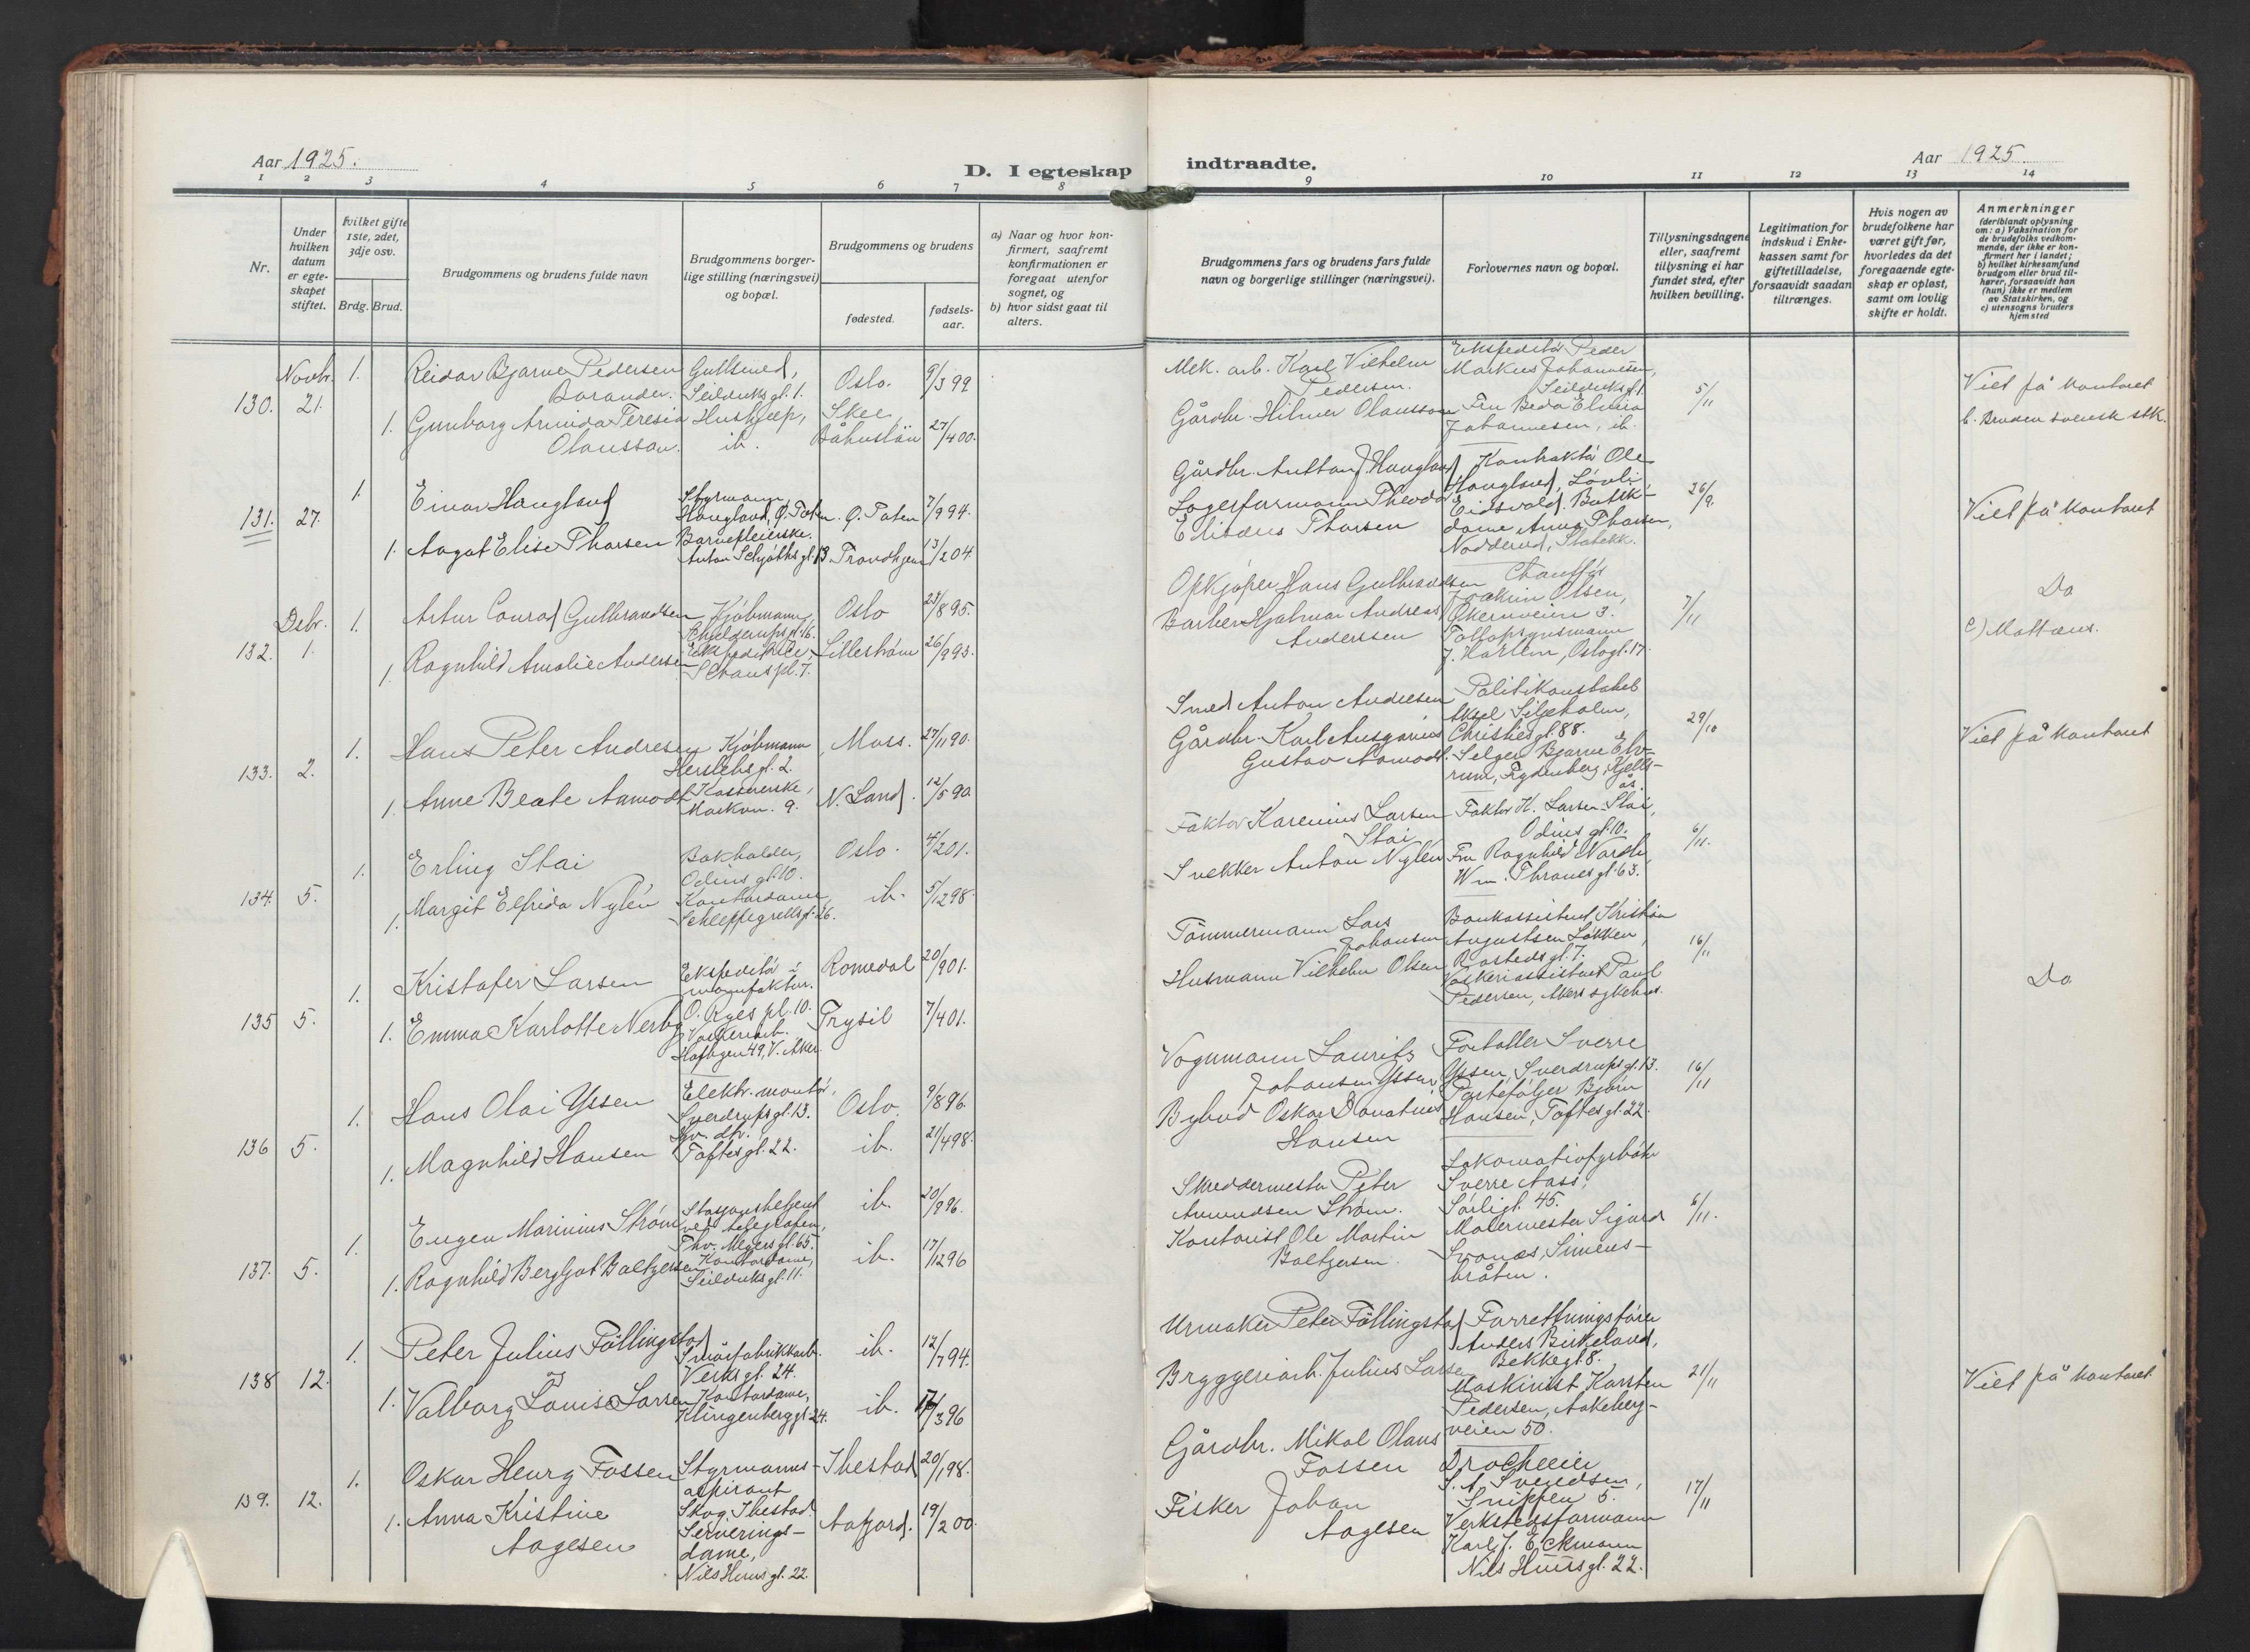 Aar 1925.
D. I egteskap indtraadte.
Aar 1925.
1 2 3 4 5 6 7 8 9 10 11 12 13 14
Nr.
Under hvilken datum er egteskapet stiftet.
hvilket gifte 1ste, 2det, 3dje osv.
Brdg. Brud.
Brudgommens og brudens fulde navn
Brudgommens borgerlige stilling (næringsvei) og bopæl.
Brudgommens og brudens
fødested.
fødselsaar.
a) Naar og hvor konfirmert, saafremt konfirmationen er foregaat utenfor sognet, og
b) hvor sidst gaat til alters.
Brudgommens fars og brudens fars fulde navn og borgerlige stillinger (næringsvei).
Forlovernes navn og bopæl.
Tillysningsdagene eller, saafremt tillysning ei har fundet sted, efter hvilken bevilling.
Legitimation for indskud i Enkekassen samt for giftetilladelse, forsaavidt saadan tiltrænges.
Hvis nogen av brudefolkene har været gift før, hvorledes da det foregaaende egteskap er opløst, samt om lovlig skifte er holdt.
Anmerkninger
(deriblandt oplysning om: a) Vaksination for de brudefolks vedkommende, der ikke er konfirmert her i landet; b) hvilket kirkesamfund brudgom eller brud tilhører, forsaavidt han (hun) ikke er medlem av Statskirken, og c) utensogns bruders hjemsted
130. Novbr. 21.
1. Reidar Bjarne Pedersen
Gullsmed,
Seilduksgt. 1.
Oslo. 9/3 99
1. Gunborg Arinida Teresia
Olausson.
Hushjelp,
ib.
Skee,
Båhuslän
27/4 00.
Mek. arb. Karl Vilhelm
Pedersen.
Gårdbr. Hilmer Olausson
Ekspeditør Peder
Markus Johannesen,
Seilduksgt. 1
Fru Beda Elvira
Johannesen, ib.
5/11
Viet på kontoret
b. Bruden svensk stk.
131. 27.
1. Einar Haugland
Styrmann,
Haugland, Ø. Toten.
Ø. Toten 7/9 94.
1. Aagot Elise Thorsen
Barnepleierske.
Anton Schjøths gt. 13.
Trondhjem 13/2 04
Gårdbr. Anton J. Haugland
Lagerformann Theodor
Thorsen
Kontraktør Ole
Haugland,
Eidsvold. Butikk-
dame Anna Thorsen,
26/9.
Viet på kontoret
132. Dsbr. 1.
1. Artur Conrad Gulbrandsen
Kjøbmann,
Schulderupsgt. 16.
Oslo /8 95.
1. Ragnhild Amalie Andersen
Ekspeditrice,
Schous pl. 7.
Lillestrøm 26/9 93.
Opkjøper Hans Gulbrandsen
Barber Hjalmar Andreas
Anderssen
Chauffør
Joakim Olsen,
Økernveien 3.
Tollopsynsmann
J. Harlem, Oslogt. 17
7/11
Do
c) Mattæus.
133. 2.
1. Hans Peter Andresen
Kjøbmann,
Herslebsgt. 2.
Moss. 27/11 90.
1. Anne Beate Aamodt
Kassererske,
Markvn. 9.
N. Land. 12/5 90
Smed Anton Andresen
Gårdbr. Karl Ansgarius
Gustav Aamodt.
Politikonstabel
Aksel Siljeholm,
Christiesgt. 88.
Selger Bjarne Elv-
rum, Frydenberg, Kjels-
ås.
29/10
Viet på kontoret
134. 5.
1. Erling Stai
Bokholder,
Odins gt. 10.
Oslo. 4/2 01.
1. Margit Elfrida Nylén
Kontordame
Schleppegrellsgt. 26.
ib. 5/12 98.
Faktor Karenius Larsen
Stai
Snekker Anton Nylén
Faktor K. Larsen-Stai,
Odins gt. 10.
Fru Ragnhild Nordli,
Wm. Thranesgt. 63.
6/11.
135 5.
1. Kristofer Larsen
Ekspeditør i
manufaktur.
O. Ryes pl. 10.
Romedal 20/9 01.
1. Emma Karlotte Nerby
Vaskeriarb.
V. Aker
Trysil 7/4 01.
Tømmermann Lars
Johansen
Husmann Vilhelm Olsen
Bankassistent Kristian
Augustsen Løkken,
Rostedsgt. 7.
Vaskeriassistent Paul
Pedersen, Akers sykehus.
16/11
Do
136 5.
1. Hans Olai Yssen
Elektr. montør,
Sverdrupsgt. 13.
Oslo. 9/8 96.
1. Magnhild Hansen
Toftesgt. 22.
ib. 21/4 98.
Vognmann Laurits
Johansen Yssen
Bybud Oskar Donatius
Hansen
Fortoller Sverre
Yssen, Sverdrupsgt. 13.
Bjørn
Hansen, Toftesgt. 22.
16/11
137. 5.
1. Eugen Marinius Strøm
Stasjonsbetjent
ved telegrafen,
Thv. Meyersgt. 65.
ib. 20/9 96.
1. Ragnhild Bergljot Baltzersen
Kontordame,
Seilduksgt. 11.
ib. 17/12 96
Skreddermester Peter
Amundsen Strøm.
Kontorist Ole Martin
Baltzersen.
Lokomotivfyrbøter
Sverre Aass,
Sørligt. 45.
Malermester Sigurd
Svanæs, Simens-
bråten.
6/11.
138 12.
1. Peter Julius Föllingstad
Smørfabrikkarb.
Verksgt. 24.
ib. 12/7 94.
1. Valborg Louise Larsen
Kontordame,
Klingenberggt. 24.
ib. 17/3 96
Urmaker Peter Föllingstad
Bryggeriarb. Julius Larsen
Forretningsfører
Anders Birkeland,
Bekkegt. 8.
Maskinist Karsten
Pedersen, Aakeberg-
veien 50.
21/11
Viet på kontoret
139. 12.
1. Oskar Henry Fossen
Styrmanns-
aspirant
Skog, Ibestad.
Ibestad 20/1 98.
1. Anna Kristine
Aagesen
Serverings-
dame,
Nils Huusgt. 22.
Aafjord. 19/2 00.
Gårdbr. Mikal Olaus
Fossen
Fisker Johan
Aagesen
S. A. Svendsen,
Snippen 5.
Verkstedsformann
Karl J. Eckmann
Nils Huusgt. 22.
17/11